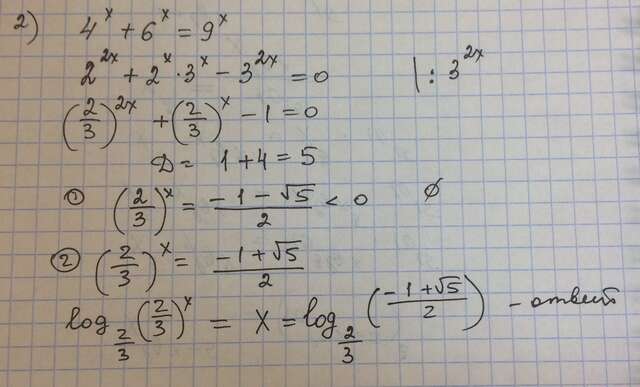 2) 4^x + 6^x = 9^x
2^{2x} + 2^x · 3^x − 3^{2x} = 0 | : 3^{2x}
(2/3)^{2x} + (2/3)^x − 1 = 0
D = 1 + 4 = 5
① (2/3)^x = (−1 − √5)/2 < 0 ∅
② (2/3)^x = (−1 + √5)/2
log_{2/3} (2/3)^x = x = log_{2/3} ((−1 + √5)/2) − ответ